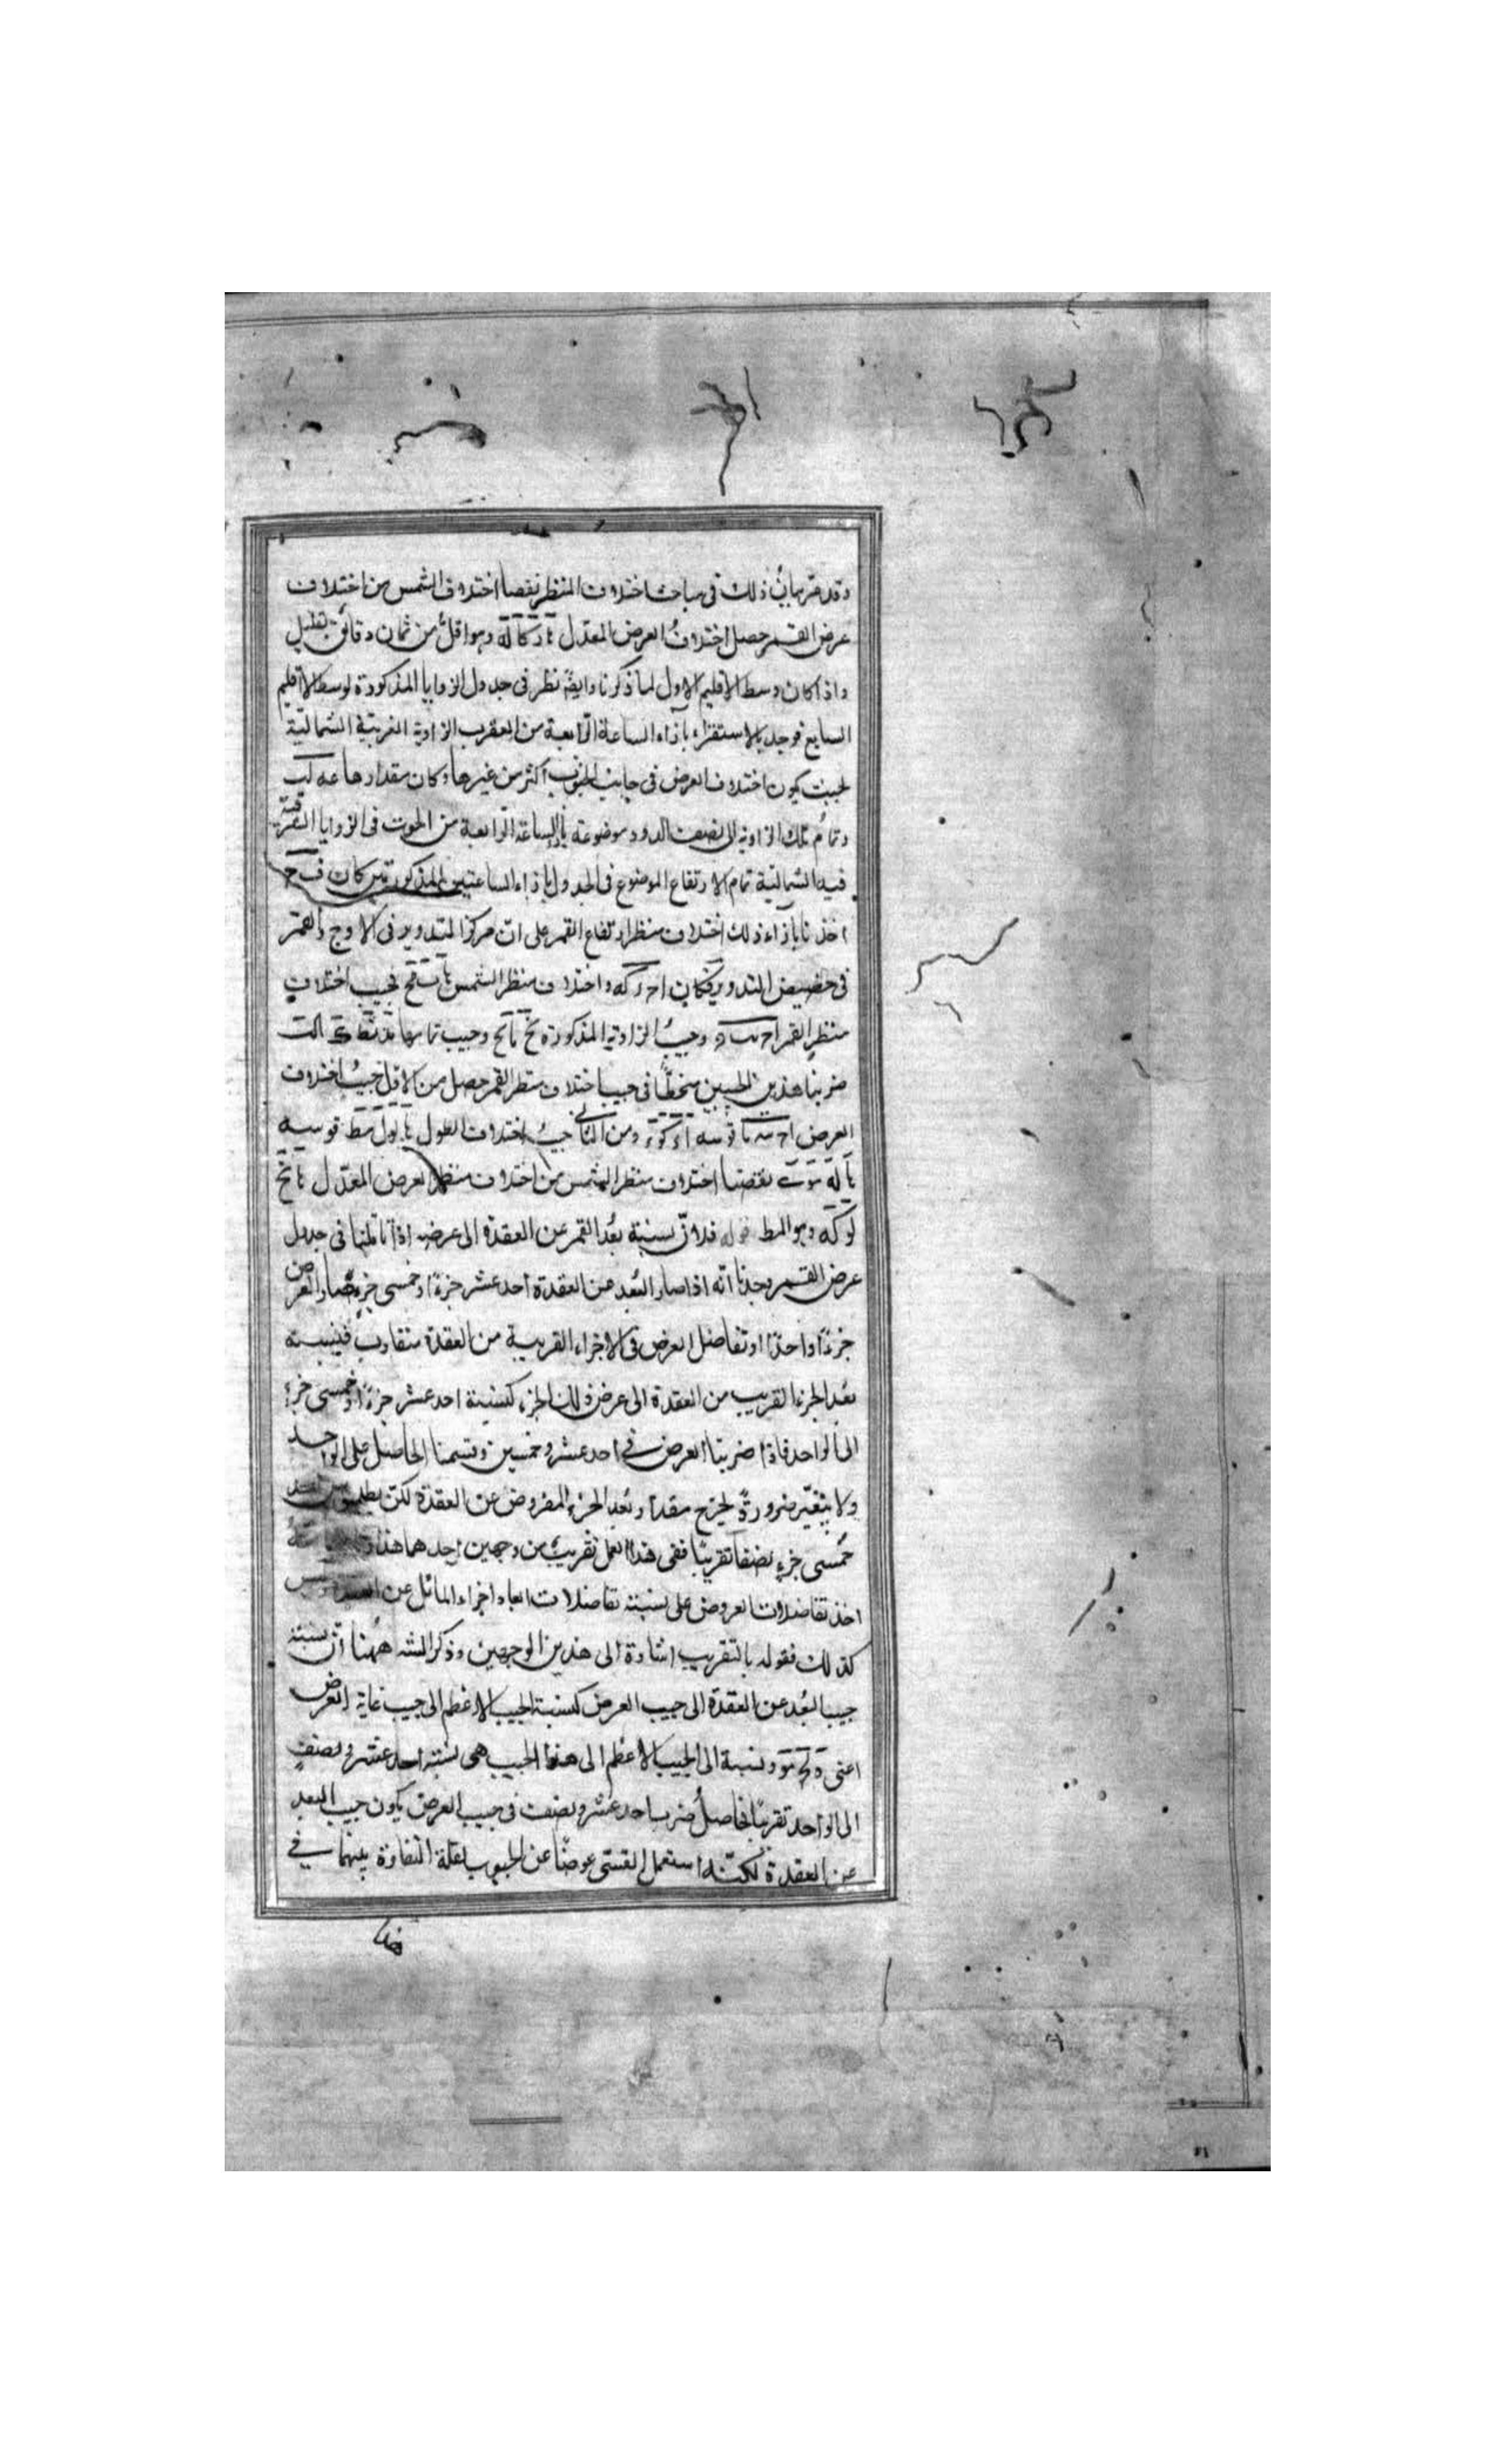 وقد مرّ بيان ذلك فى مباحث اختلاف المنظر نقصنا اختلاف الشمس من اختلاف
عرض القمر حصل اختلافُ العرض المعدّل وهو اقلّ من ثمان دقائق بقليل
واذا كان وسط الاقليم الاول لما ذكرنا وايضًا نظر فى جدول الزوايا المذكورة لوسط الاقليم
السابع فوجد بالاستقراء بازاء الساعة الرابعة من العقرب الزاوية الغربية الشمالية
بحيث يكون اختلاف العرض فى جانب الجنوب اكثر من غيرها وكان مقدارها
وتمامُ تلك الزاوية الى نصف الدور موضوعة بازاء الساعة الرابعة من الحوت فى الزوايا الشرقية
فيه الشمالية تمام الارتفاع الموضوع فى الجدول بازاء الساعتين المذكورتين كان
اخذنا بازاء ذلك اختلاف منظر ارتفاع القمر على انّ مركز التدوير فى الاوج والقمر
فى حضيض التدوير فكان واختلاف منظر الشمس فجيب اختلاف
منظر القمر وجيبُ الزاوية المذكورة وجيب تمامها
ضربنا هذين الجيبين منحطًّا فى جيب اختلاف منظر القمر حصل من الاول جيبُ اختلاف
العرض قوسه ومن الثانى جيبُ اختلاف الطول قوسه
نقصنا اختلاف منظر الشمس من اختلاف منظر العرض المعدّل
وهو المط قوله فلانّ نسبة بُعد القمر عن العقدة الى عرضه اذا تأملنا فى جدول
عرض القمر وجدنا انّه اذا صار البُعد عن العقدة احد عشر جزءًا وخمسى جزءٍ صار العرض
جزءًا واحدًا وتفاضل العرض فى الاجزاء القريبة من العقدة متقارب فنسبة
بُعد الجزء القريب من العقدة الى عرض ذلك الجزء كنسبة احد عشر جزءًا وخمسى جزء
الى الواحد فاذا ضربنا العرض فى احد عشر وخمسين وقسمنا الحاصل على الواحد
ولا يتغيّر ضرورةً يخرج مقدار بُعد الجزء المفروض عن العقدة لكن
خُمسى جزءٍ نصفا تقريبًا ففى هذا العمل تقريبٌ من وجهين احدهما هذا
اخذ تفاضلات العروض على نسبة تفاضلات ابعاد اجزاء المائل عن
كذلك فقوله بالتقريب اشارة الى هذين الوجهين وذكر الشه ههُنا انّ نسبة
جيب البُعد عن العقدة الى جيب العرض كنسبة الجيب الاعظم الى جيب غاية العرض
اعنى ونسبة الجيب الاعظم الى هذا الجيب هى نسبة احد عشر ونصف
الى الواحد تقريبًا فحاصلُ ضرب احد عشر ونصف فى جيب العرض يكون جيب البعد
عن العقدة لكنّه استعمل القسىّ عوضًا عن الجيوب لقلة التفاوة بينهما فى